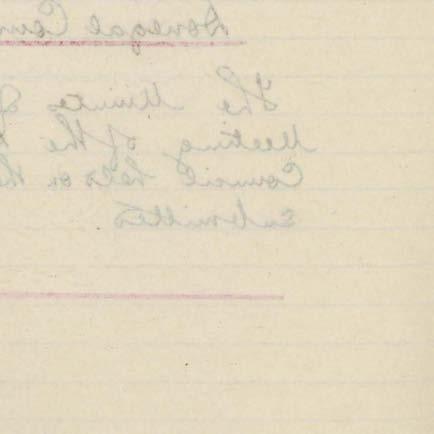 Donegal Coun
The Minutes of
Meeting of the
Council held on th
submitted